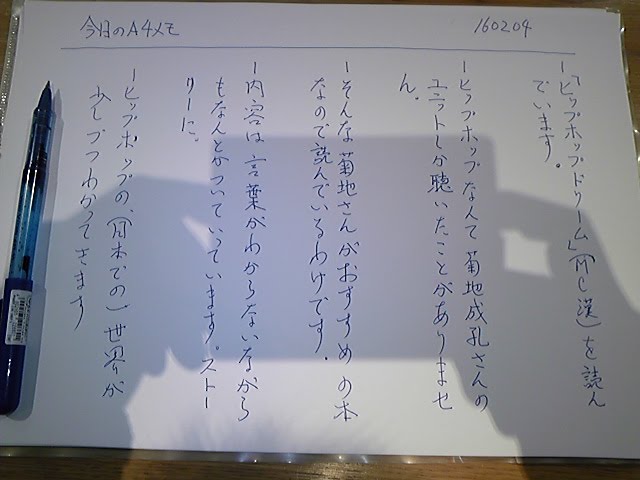 今日のA4メモ
160204
ー「ヒップホップ・ドリーム」(MC漢)を読ん
でいます。
ーヒップホップなんて菊地成孔さんの
ユニットしか聴いたことがありませ
ん。
ーそんな菊地さんがおすすめの本
なので読んでいるわけです。
ー内容は言葉がわからないながら
もなんとかついていっています。ストー
リーに。
ーヒップホップの、(日本での)世界が
少しづつわかってきます